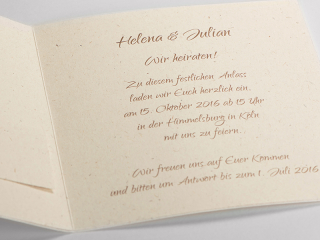 Helena & Julian
Wir heiraten!
Zu diesem festlichen Anlass
laden wir Euch herzlich ein,
am 15. Oktober 2016 ab 15 Uhr
in der Himmelsburg in Köln
mit uns zu feiern.
Wir freuen uns auf Euer Kommen
und bitten um Antwort bis zum 1. Juli 2016